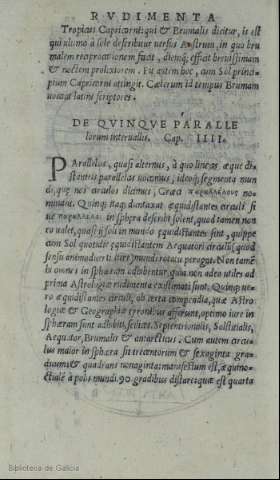 RVDIMENTA
Tropicus Capricorni: qui & Brumalis dicitur, is est
qui ultimo à sole describitur versus Austrum, in quo bru
malem reciprocationem facit, diemq; efficit brevissimum
& noctem prolixiorem. Fit autem hoc, cum Sol princi-
pium Capricorni attingit. Cæterum id tempus Brumam
vocant latini scriptores.
DE QVINQVE PARALLE
lorum intervallis. Cap. IIII.
PArallelos, quasi alternus, à quo lineas æque di-
stantes parallelas vocamus, ideoq; segmenta mun
di, quæ nos circulos dicimus, Græci παραλλήλους no-
minant. Quinq; itaq; duntaxat æquidistantes circuli si
ve παραλλήλοι in sphæra describi solent, quod tamen non
eo valet, quasi ij soli in mundo equidistantes sint, quippe
cum Sol quotidie equidistantem Aequatori circulum, quod
sensu animadverti mundi rotatu peragat. Non tamē
ij omnes in sphæram adhibentur, quia non adeo utiles ad
prima Astrologiæ rudimenta existimati sunt. Quinq; ve-
ro æquidistantes circuli, ob certa compendia, quæ Astro-
logiæ & Geographiæ tyronibus afferunt, optimo iure in
sphæram sunt adhibiti, scilicet, Septentrionalis, Solstitialis,
Aequator, Brumalis & antarcticus. Cum autem circu-
lus maior in sphæra sit trecentorum & sexaginta gra-
duum: & quadrans nonaginta manifestum est, æquino-
ctialē à polo mundi. 90. gradibus distare: quæ est quarta
Biblioteca de Galicia